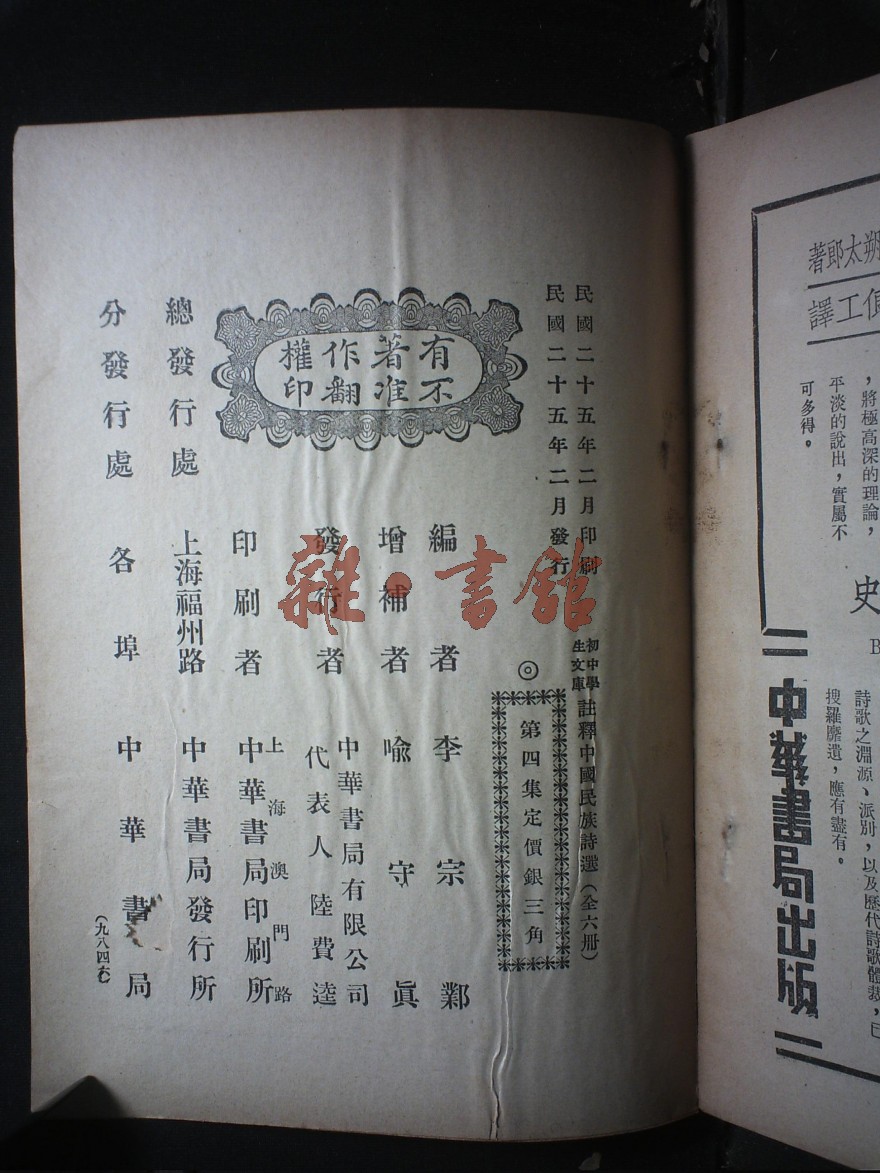 民國二十五年二月印刷
民國二十五年二月發行
初中學生文庫
註釋中國民族詩選(全六册)
◎
第四集定價銀三角
有著作權
不准翻印
編者 李宗鄴
增補者 喩守眞
發行者 中華書局有限公司
代表人 陸費逵
印刷者 上海澳門路
中華書局印刷所
總發行處 上海福州路 中華書局發行所
分發行處 各埠中華書局
雜·書館
朔太郎著
工譯
,將極高深的理論,
平淡的說出,實屬不
可多得。
史
B
詩歌之淵源、派別,以及歷代詩歌體裁,
搜羅靡遺,應有盡有。
中華書局出版